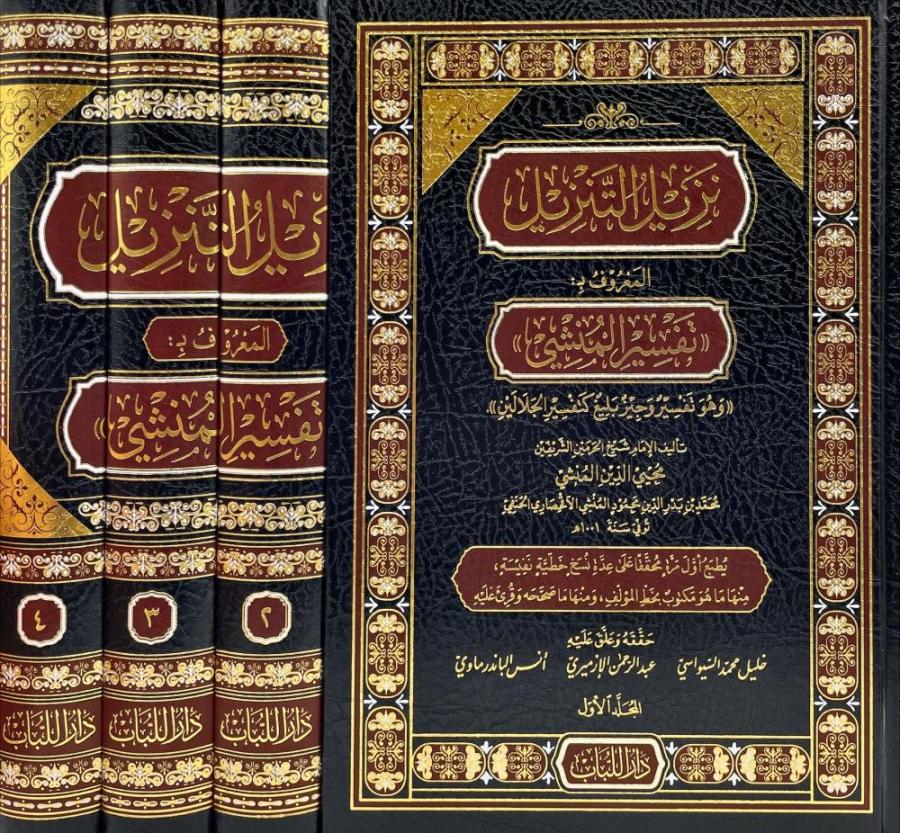 نزيل التنزيل
المعروف بـ:
«تفسير المنشي»
«وهو تفسير وجيز بليغ كتفسير الجلالين».
تأليف الإمام شيخ الحرمين الشريفين
محيي الدين المنشي
محمد بن بدر الدين محمود المنشي الآقحصاري الحنفي
توفي سنة ١٠٠١هـ
يطبع أول مرة محققا على عدة نسخ خطية نفيسة،
منها ما هو مكتوب بخط المؤلف، ومنها ما صححه وقرئ عليه
حققه وعلق عليه
خليل محمد السيواسي عبد الرحمن الإزميري أنس الباندرماوي
المجلد الأول
دار اللباب
نزيل التنزيل
المعروف بـ:
تفسير المنشي»
٢
٣
٤
دار اللباب
دار اللباب
دار اللباب